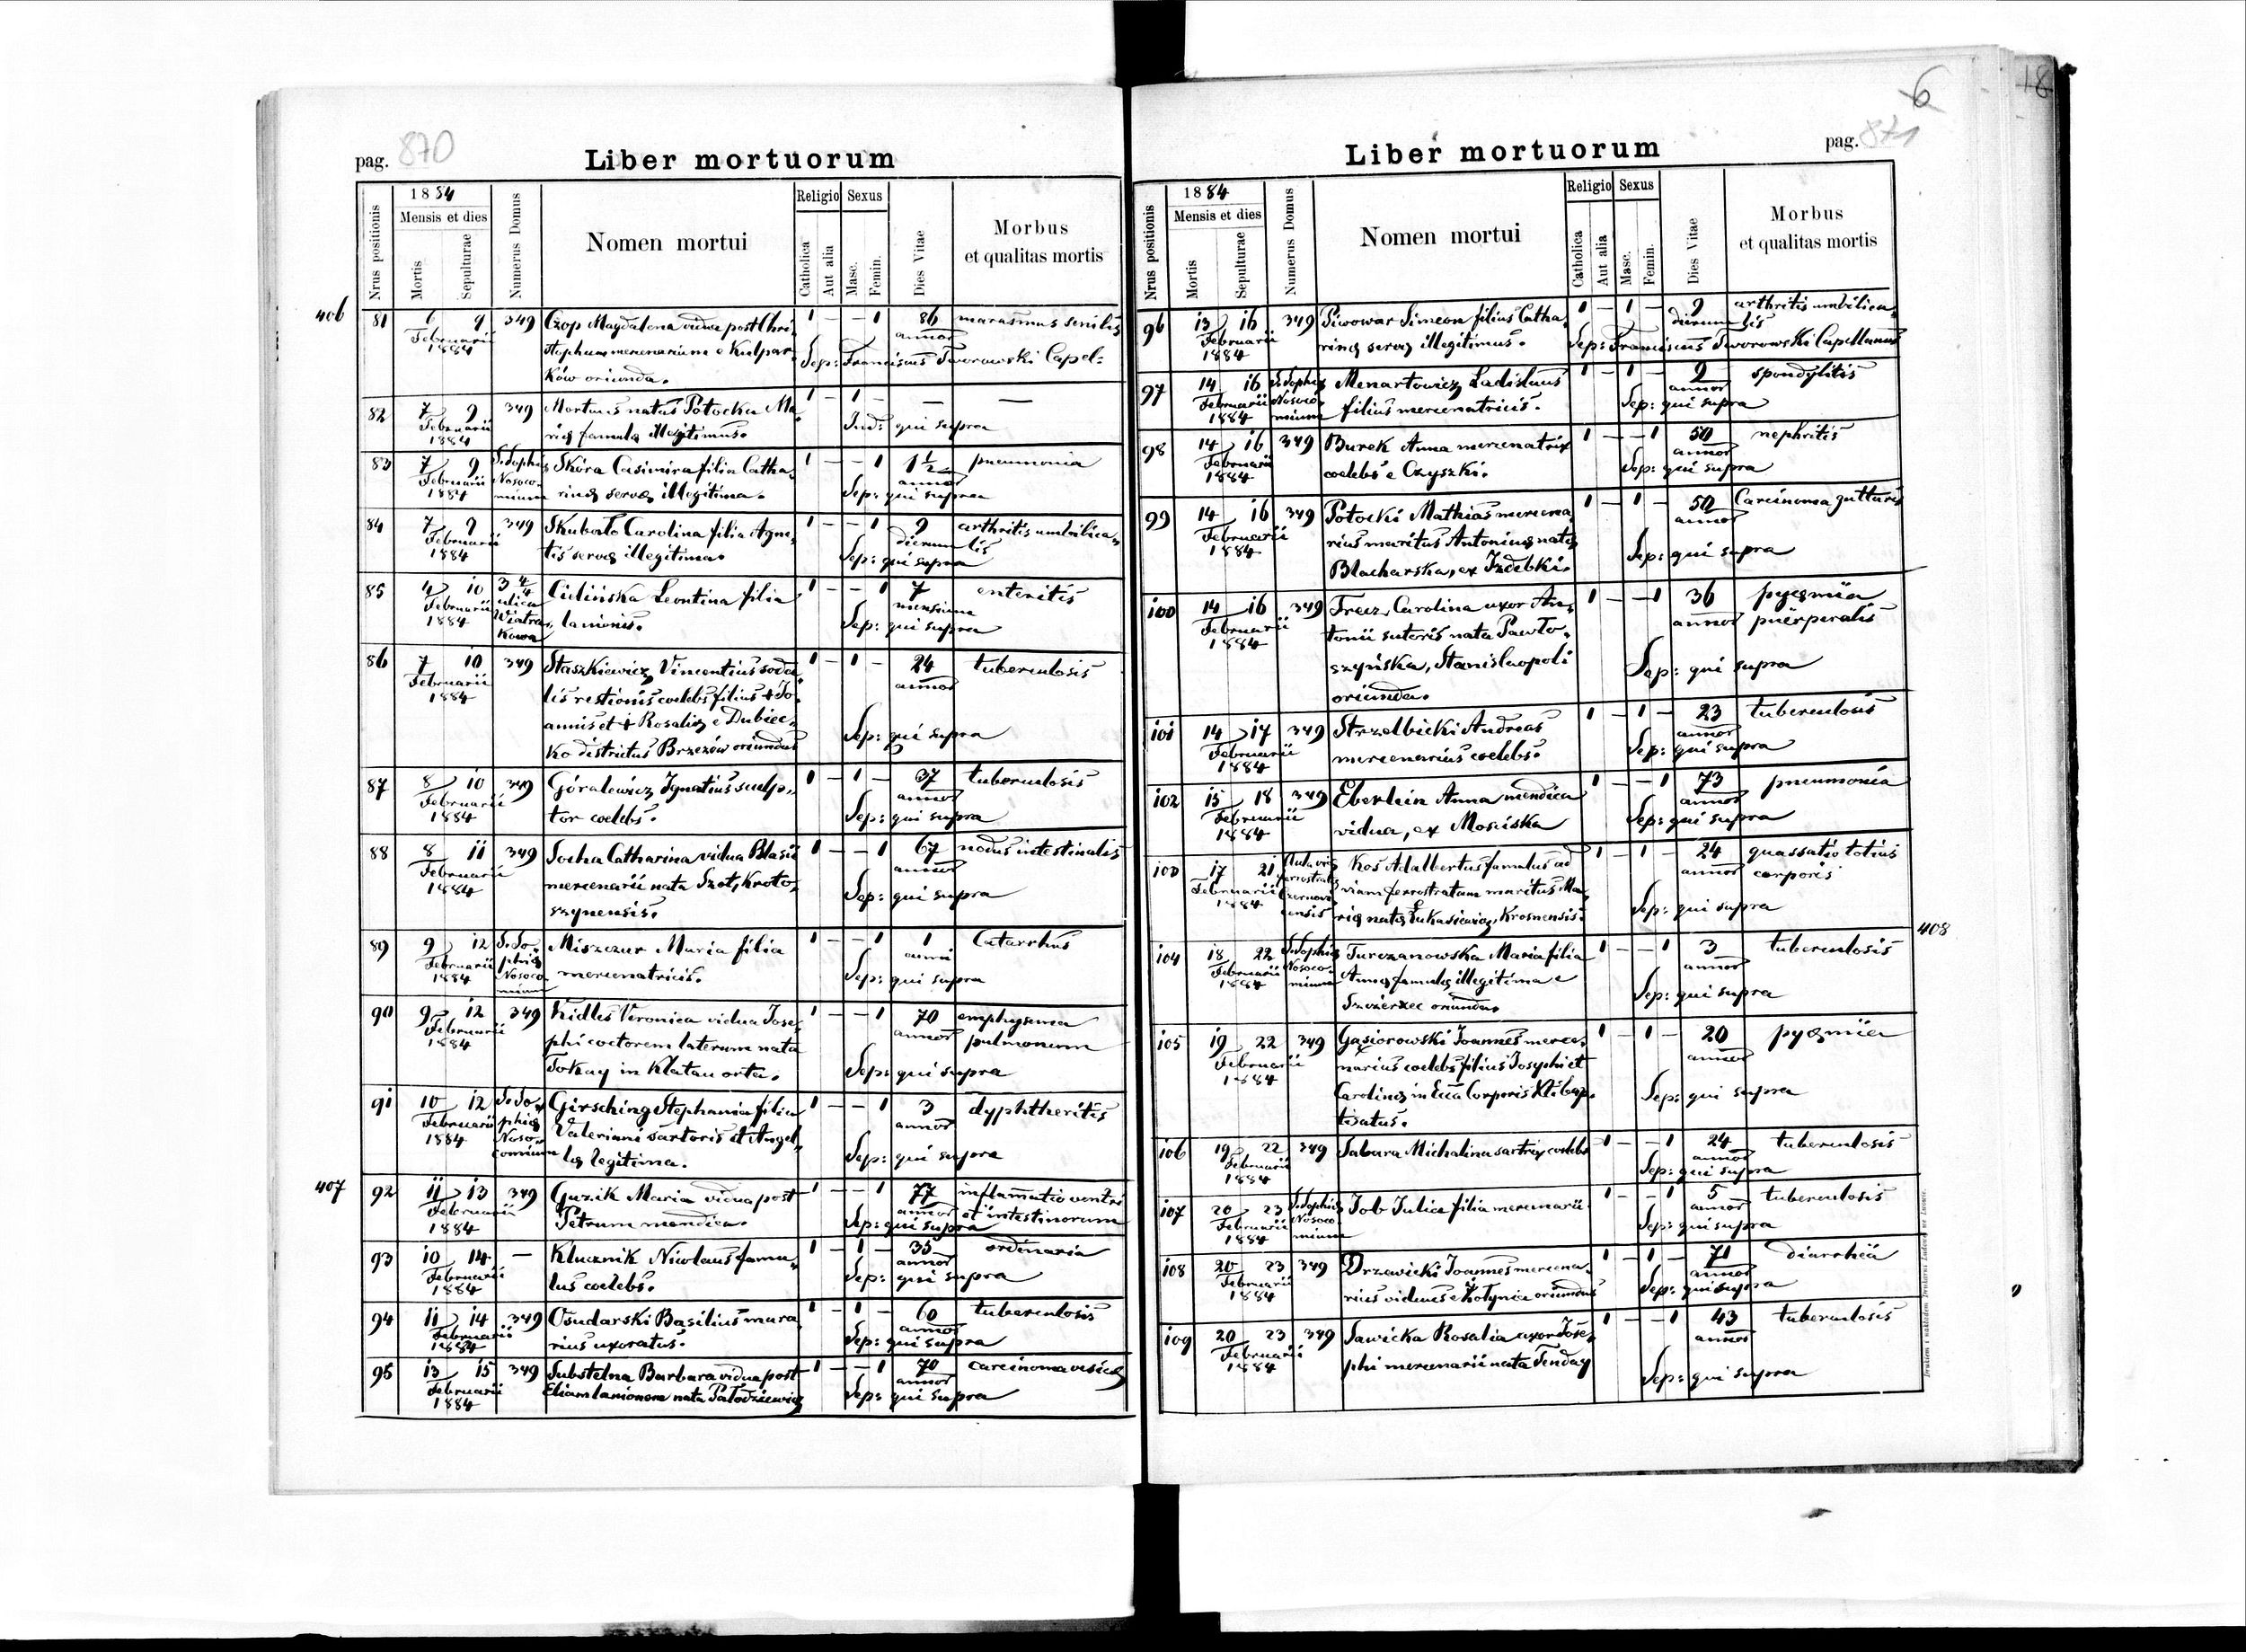 6
18
pag. 870
Liber mortuorum
Nrus positionis
1884
Mensis et dies
Mortis
Sepulturae
Numerus Domus
Nomen mortui
Religio
Catholica
Aut alia
Sexus
Masc.
Femin.
Dies Vitae
Morbus
et qualitas mortis
406
81 6 9 349 Czop Magdalena vidua post Chri- 1 — — 1 86 marasmus senilis
Februarii stophum mercenarium e Kulpar- annor
1884 Sep: Franciscus Tworowski Capel-
ków oriunda.
82 7 9 349 Mortuus natus Potocka Ma- 1 — 1 — — —
Februarii riæ famulæ illegitimus. Ind: qui supra
1884
83 7 9 S. Sophiæ Skóra Casimira filia Catha- 1 — — 1 1½ pneumonia
Februarii Nosoco- rinæ servæ illegitima. annor
1884 mium Sep: qui supra
84 7 9 349 Skubało Carolina filia Agne- 1 — — 1 9 arthritis umbilica-
Februarii tis servæ illegitima. dierum lis
1884 Sep: qui supra
85 4 10 3 4/4 Cielińska Leontina filia 1 — — 1 7 enteritis
Februarii ulica lanionis. mensium
1884 Wiatra- Sep: qui supra
kowa
86 7 10 349 Staszkiewicz Vincentius soda- 1 — 1 — 24 tuberculosis
Februarii lis restionis coelebs filius + Jo- annor
1884 annis et + Rosaliæ e Dubiec-
ko districtus Brzezów oriundus Sep: qui supra
87 8 10 349 Góralewicz Ignatius sculp- 1 — 1 — 37 tuberculosis
Februarii tor coelebs. annor
1884 Sep: qui supra
88 8 11 349 Socha Catharina vidua Blasii 1 — — 1 67 nodus intestinalis
Februarii mercenarii nata Szot, Kroto- annor
1884 szynensis. Sep: qui supra
89 9 12 S. So- Miszczur Maria filia 1 — — 1 1 Catarrhus
Februarii phiæ mercenatricis. anni
1884 Nosoco- Sep: qui supra
mium
90 9 12 349 Kidles Veronica vidua Jose- 1 — — 1 70 emphysema
Februarii phi coctorem laterum nata annor pulmonum
1884 Tokay in Klatau orta. Sep: qui supra
91 10 12 S. So- Girsching Stephania filia 1 — — 1 3 dyphtheritis
Februarii phiæ Valeriani sartoris et Angel- annor
1884 Noso- læ legitima. Sep: qui supra
comium
407
92 11 13 349 Guzik Maria vidua post 1 — — 1 77 inflammatio ventri
Februarii Petrum mendica. annor et intestinorum
1884 Sep: qui supra
93 10 14 — Klucznik Nicolaus famu- 1 — 1 — 35 ordinaria
Februarii lus coelebs. annor
1884 Sep: qui supra
94 11 14 349 Osudarski Basilius mura- 1 — 1 — 60 tuberculosis
Februarii rius uxoratus. annor
1884 Sep: qui supra
95 13 15 349 Substelna Barbara vidua post 1 — — 1 70 carcinoma vesicæ
Februarii Eliam lanionem nata Pałodziewicz annor
1884 Sep: qui supra
Liber mortuorum
pag. 871
Nrus positionis
1884
Mensis et dies
Mortis
Sepulturae
Numerus Domus
Nomen mortui
Religio
Catholica
Aut alia
Sexus
Masc.
Femin.
Dies Vitae
Morbus
et qualitas mortis
96 13 16 349 Piwowar Simeon filius Catha- 1 — 1 — 9 arthritis umbilica-
Februarii rinæ servæ illegitimus. dierum lis
1884 Sep: Franciscus Tworowski Capellanus
97 14 16 S. Sophiæ Menartowicz Ladislaus 1 — 1 — 9 spondylitis
Februarii Nosoco- filius mercenatricis. annor
1884 mium Sep: qui supra
98 14 16 349 Burek Anna mercenatrix 1 — — 1 50 nephritis
Februarii coelebs e Czyszki. annor
1884 Sep: qui supra
99 14 16 349 Potocki Mathias mercena- 1 — 1 — 50 Carcinoma gutturis
Februarii rius maritus Antoninæ natæ annor
1884 Blacharska, ex Izdebki. Sep: qui supra
100 14 16 349 Frecz Carolina uxor An- 1 — — 1 36 pyæmia
Februarii tonii sutoris nata Pawło- annor puerperalis
1884 szyńska, Stanislaopoli Sep: qui supra
oriunda.
101 14 17 349 Strzelbicki Andreas 1 — 1 — 23 tuberculosis
Februarii mercenarius coelebs. annor
1884 Sep: qui supra
102 15 18 349 Eberlein Anna mendica 1 — — 1 73 pneumonia
Februarii vidua, ex Mosciska annor
1884 Sep: qui supra
103 17 21 Aula viæ Kos Adalbertus famulus ad 1 — 1 — 24 quassatio totius
Februarii ferrostratæ viam ferrostratam maritus Ma- annor corporis
1884 Czernovi- riæ natæ Łukasiewicz, Krosnensis.
ensis Sep: qui supra
408
104 18 22 S. Sophiæ Turczanowska Maria filia 1 — — 1 3 tuberculosis
Februarii Nosoco- Annæ famulæ illegitima e annor
1884 mium Szczerzec oriunda. Sep: qui supra
105 19 22 349 Gąsiorowski Joannes merce- 1 — 1 — 20 pyæmia
Februarii narius coelebs filius Josephi et annor
1884 Carolinæ in Ecca Corporis Xti bap- Sep: qui supra
tisatus.
106 19 22 349 Sabara Michalina sartrix coelebs 1 — — 1 24 tuberculosis
Februarii annor
1884 Sep: qui supra
107 20 23 S. Sophiæ Job Julia filia mercenarii 1 — — 1 5 tuberculosis
Februarii Nosoco- annor
1884 mium Sep: qui supra
108 20 23 349 Drzewicki Joannes mercena- 1 — 1 — 71 diarrhea
Februarii rius viduus e Hołynia oriundus annor
1884 Sep: qui supra
109 20 23 349 Sawicka Rosalia uxor Jose- 1 — — 1 43 tuberculosis
Februarii phi mercenarii nata Tenday annor
1884 Sep: qui supra